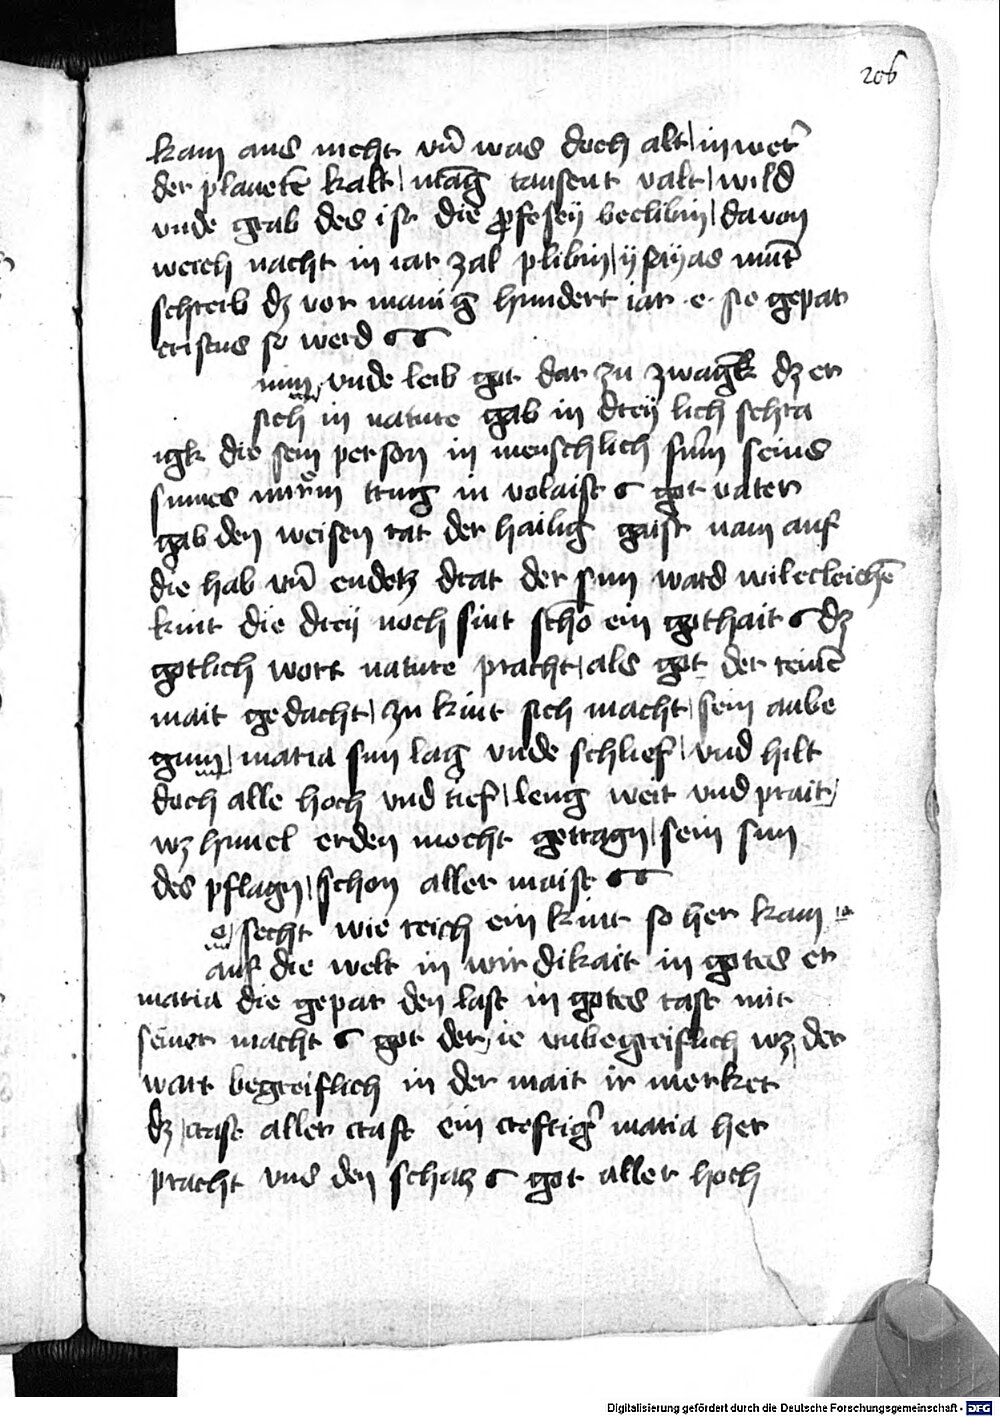 206
kam aus nicht vn̄ was doch alt / in wer̄
der planetē kalt / māg tausent valt / wild
vnde grab des ist die ꝓfesey beclibn / davon
weich nacht in iar zal plibn / ysayas mūt
schreib dz vor manig hundert iar e sie gepar
cristus so werd
nim vnde leib got dar zu zwagk dz er
sich in nature gab in drey lich schra
igk die sein person in menschlich sum seins
sunnes trug in volaist got vater
gab den weisen rat der hailig gaist nam auf
die hab vn̄ endetz drat der sun ward
kint die drey noch sint schō ein gothait dz
gotlich wort nature pracht / als got der reinē
mait gedacht / zu kint sich macht / sein anbe
gin / maria sun lag vnde schlief / vnd hilt
doch alle hoch vnd tief / leng weit vnd prait /
wz himel erden mocht getragn / sein sun
des pflagn / schon aller maist
secht wie reich ein kint so her kam in
auf die welt in wirdikait in gotes er
maria die gepar den last in gotes rast mit
seiner macht got der ie vnbegreiflich wz der
wart begreiflich in der mait ir merket
dz crast aller craft ein creftig̉ maria her
pracht vns den schatz got aller hoch
Digitalisierung gefördert durch die Deutsche Forschungsgemeinschaft - DFG